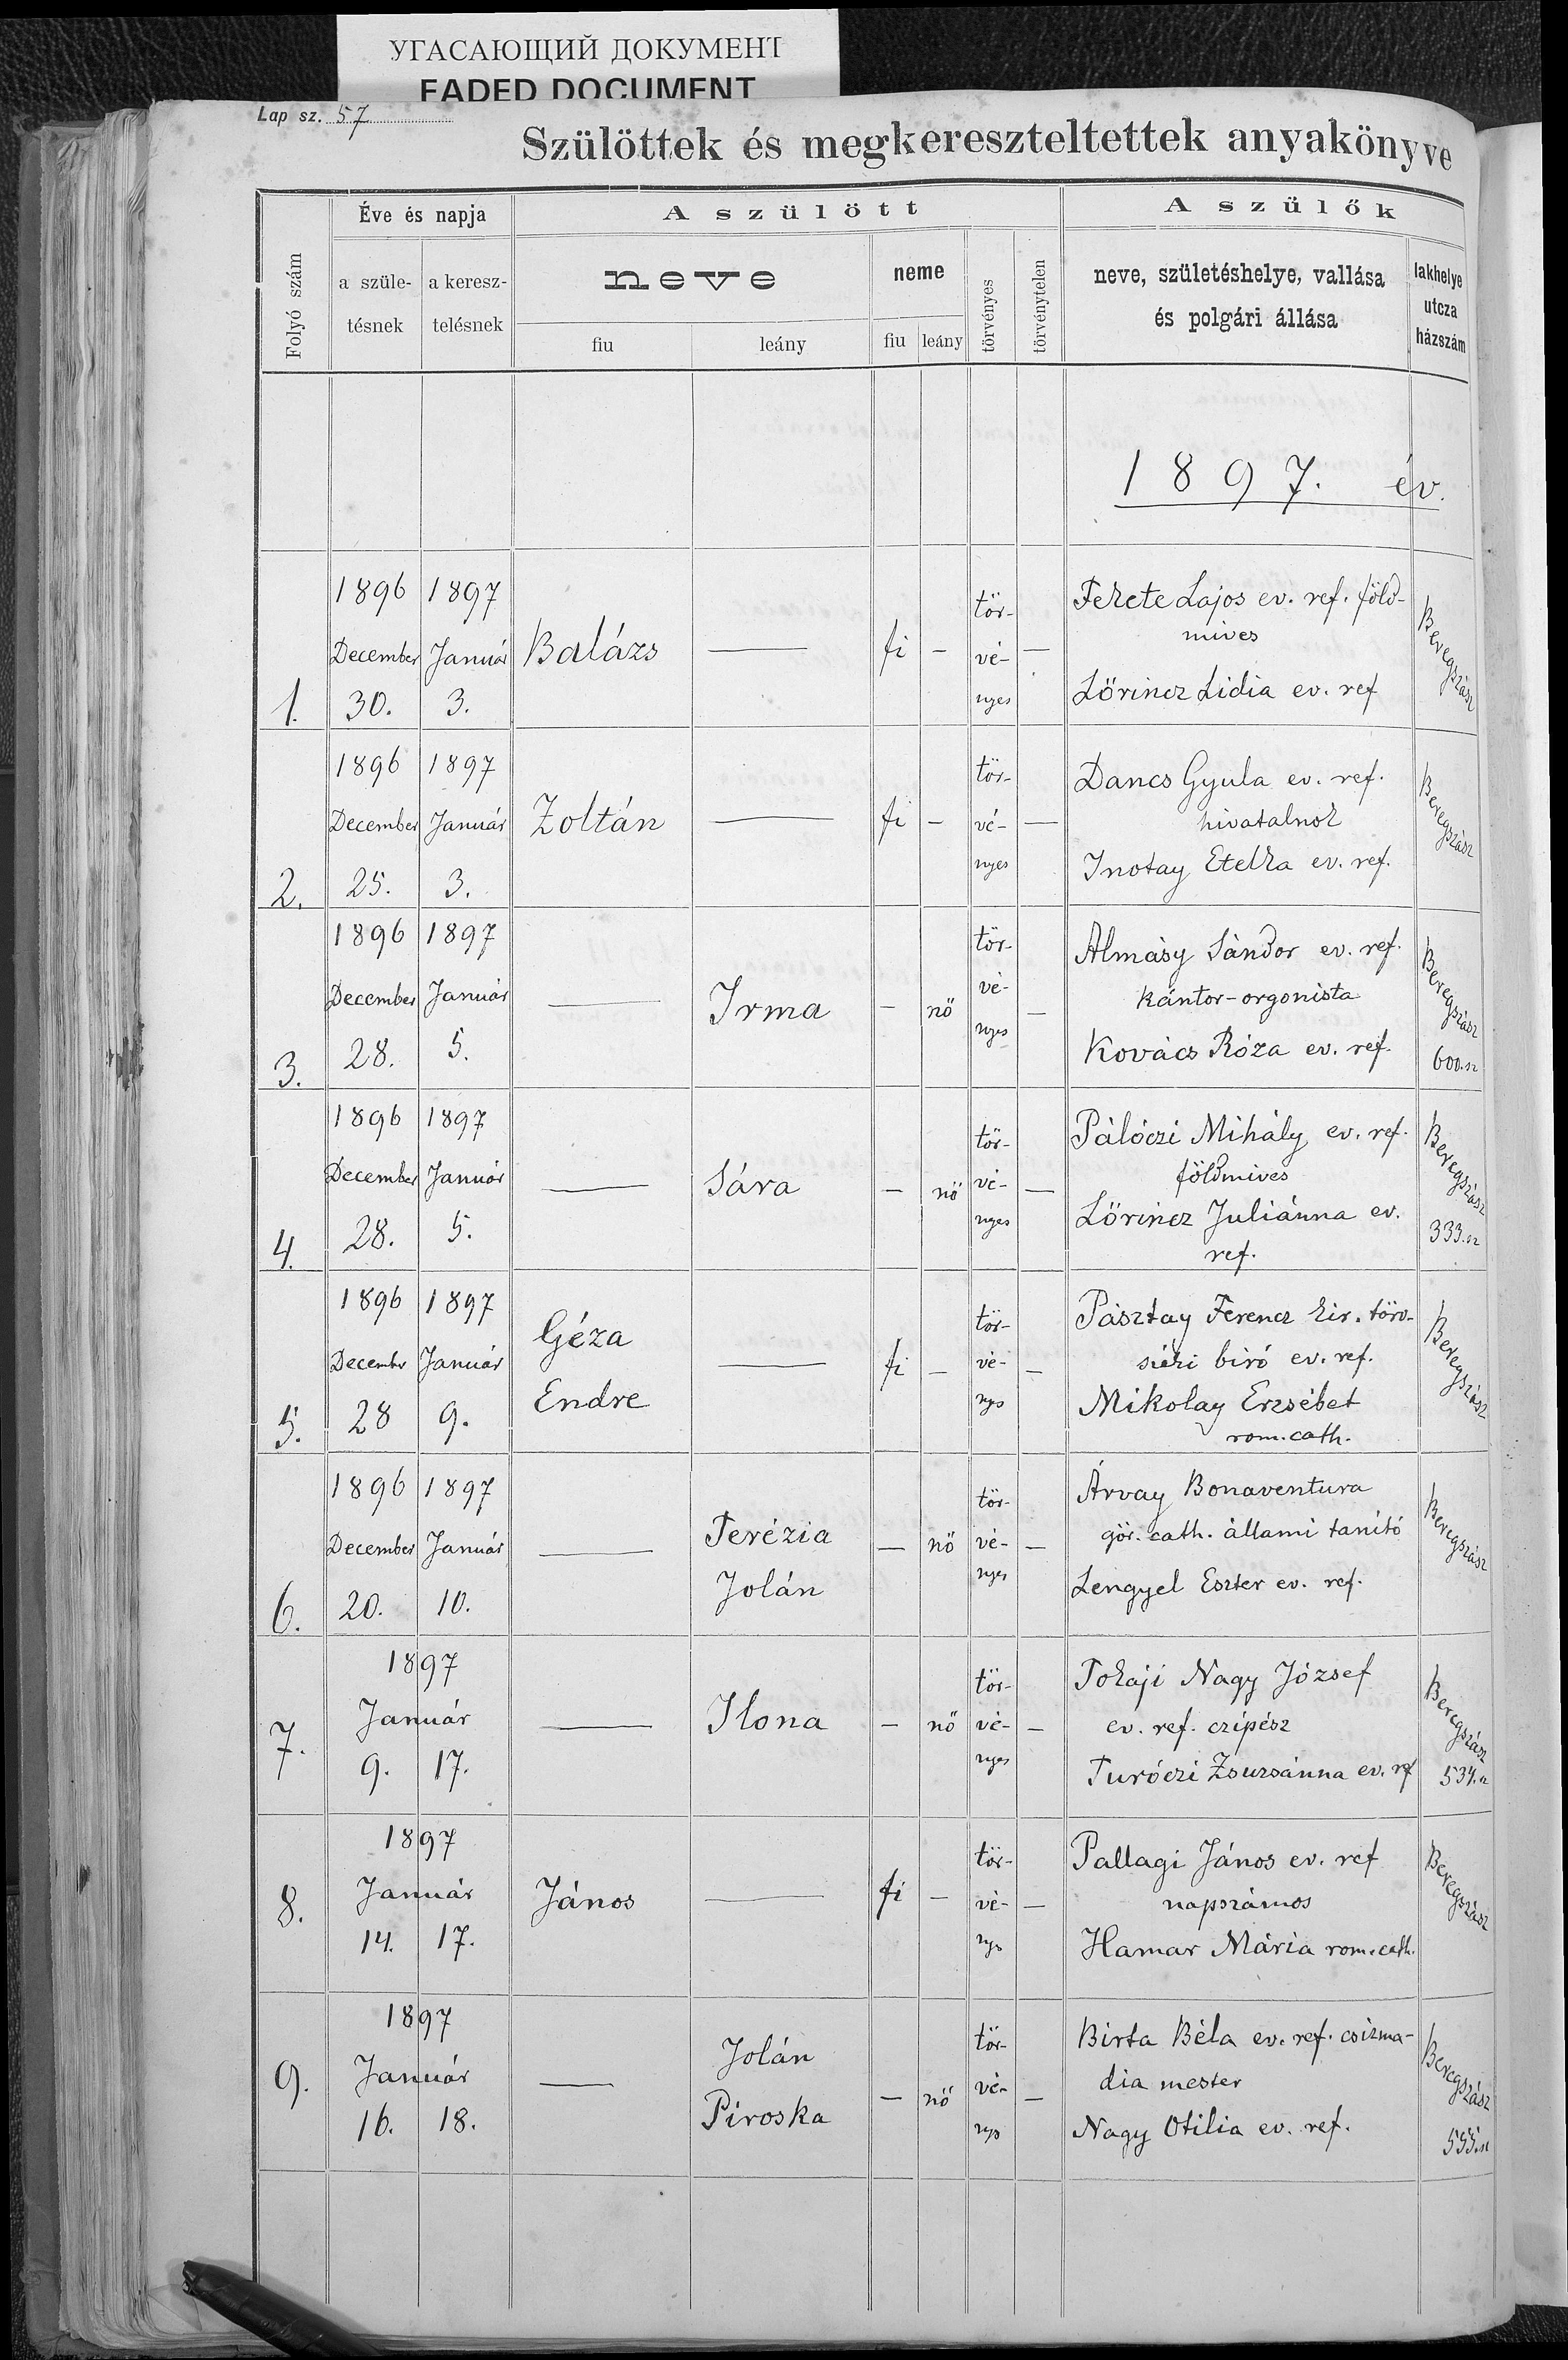 УГАСАЮЩИЙ ДОКУМЕНТ
FADED DOCUMENT
Lap sz. 57
Szülöttek és megkereszteltettek anyakönyve
Folyó szám
Éve és napja
a szüle-
tésnek
a keresz-
telésnek
A szülött
neve
fiu
leány
neme
fiu
leány
törvényes
törvénytelen
A szülők
neve, születéshelye, vallása
és polgári állása
lakhelye
utcza
házszám
1897. év.
1.
1896
December
30.
1897
Január
3.
Balázs
—
fi
-
tör-
vé-
nyes
—
Fekete Lajos ev. ref. föld-
mives
Lörincz Lidia ev. ref
Beregszász
2.
1896
December
25.
1897
Január
3.
Zoltán
—
fi
-
tör-
vé-
nyes
—
Dancs Gyula ev. ref.
hivatalnok
Inotay Etelka ev. ref.
Beregszász
3.
1896
December
28.
1897
Január
5.
—
Irma
-
nö
tör-
vé-
nyes
—
Almásy Sándor ev. ref.
kántor-orgonista
Kovács Róza ev. ref.
Beregszász
600.sz
4.
1896
December
28.
1897
Január
5.
—
Sára
-
nö
tör-
vé-
nyes
—
Pálóczi Mihály ev. ref.
földmives
Lörincz Juliánna ev.
ref.
Beregszász
333.sz
5.
1896
Decembr
28
1897
Január
9.
Géza
Endre
—
fi
-
tör-
vé-
nys
—
Pásztay Ferencz kir. törv-
széki biró ev. ref.
Mikolay Erzsébet
rom. cath.
Beregszász
6.
1896
December
20.
1897
Január
10.
—
Terézia
Jolán
—
nö
tör-
vé-
nyes
—
Árvay Bonaventura
gör. cath. állami tanitó
Lengyel Eszter ev. ref.
Beregszász
7.
1897
Január
9. 17.
—
Ilona
-
nö
tör-
vé-
nyes
—
Tokaji Nagy József
ev. ref. czipész
Turóczi Zsuzsánna ev. rf
Beregszász
534.sz
8.
1897
Január
14. 17.
János
—
fi
-
tör-
vé-
nys
—
Pallagi János ev. ref
napszámos
Hamar Mária rom. cath.
Beregszász
9.
1897
Január
16. 18.
—
Jolán
Piroska
—
nö
tör-
vé-
nys
—
Birta Béla ev. ref. csizma-
dia mester
Nagy Otilia ev. ref.
Beregszász
555.sz